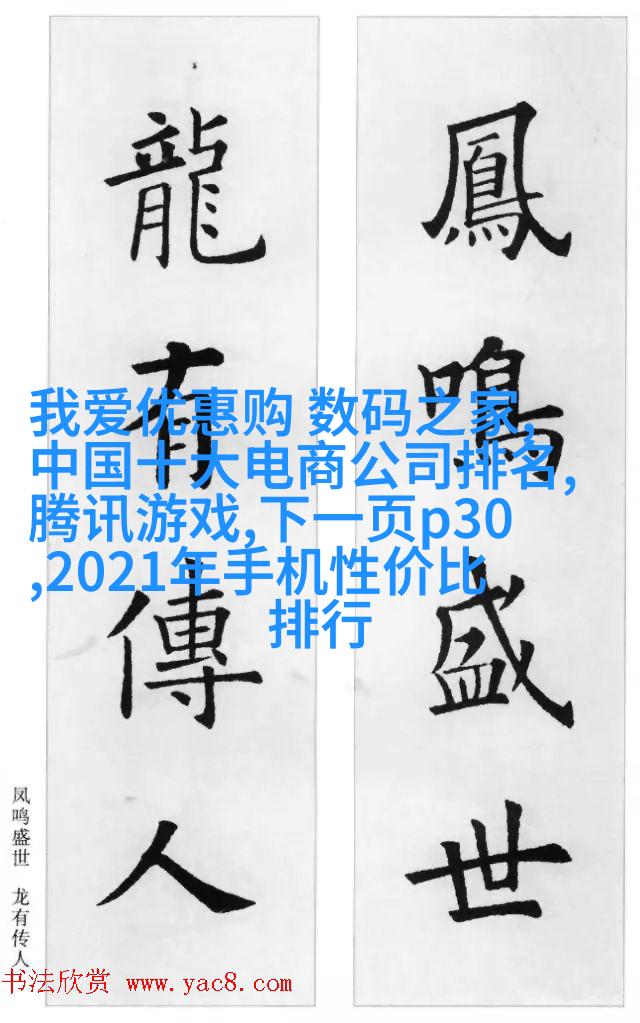 鳳鳴盛世
龍有傳人
我爱优惠购 数码之家,
中国十大电商公司排名,
腾讯游戏,下一页p30
,2021年手机性价比
排行
凤鸣盛世 龙有传人
书法欣赏 www.yac8.com